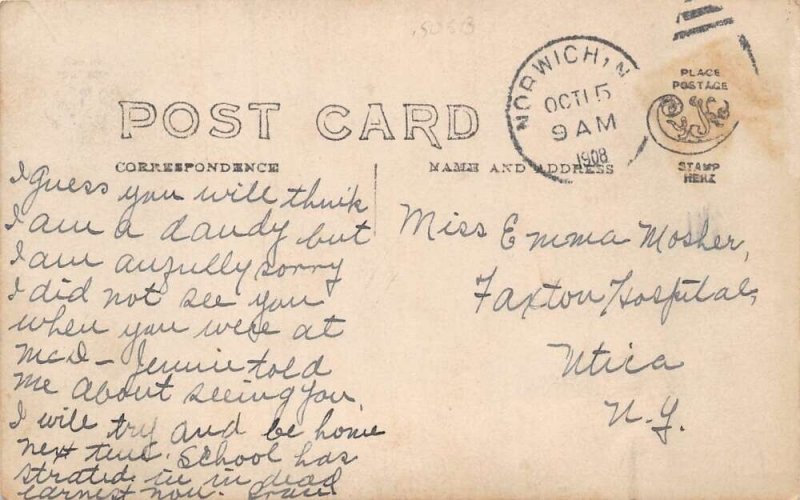 POST CARD
CORRESPONDENCE
NAME AND ADDRESS
NORWICH, N
OCT 15
9 AM
1908
PLACE
POSTAGE
STAMP
HERE
I guess you will think
I am a dandy but
I am awfully sorry
I did not see you
when you were at
McD - Jennie told
me about seeing you
I will try and be home
next time. School has
strated in in dead
earnest now.
Miss Emma Mosher,
Faxton Hospital,
Utica
N.Y.